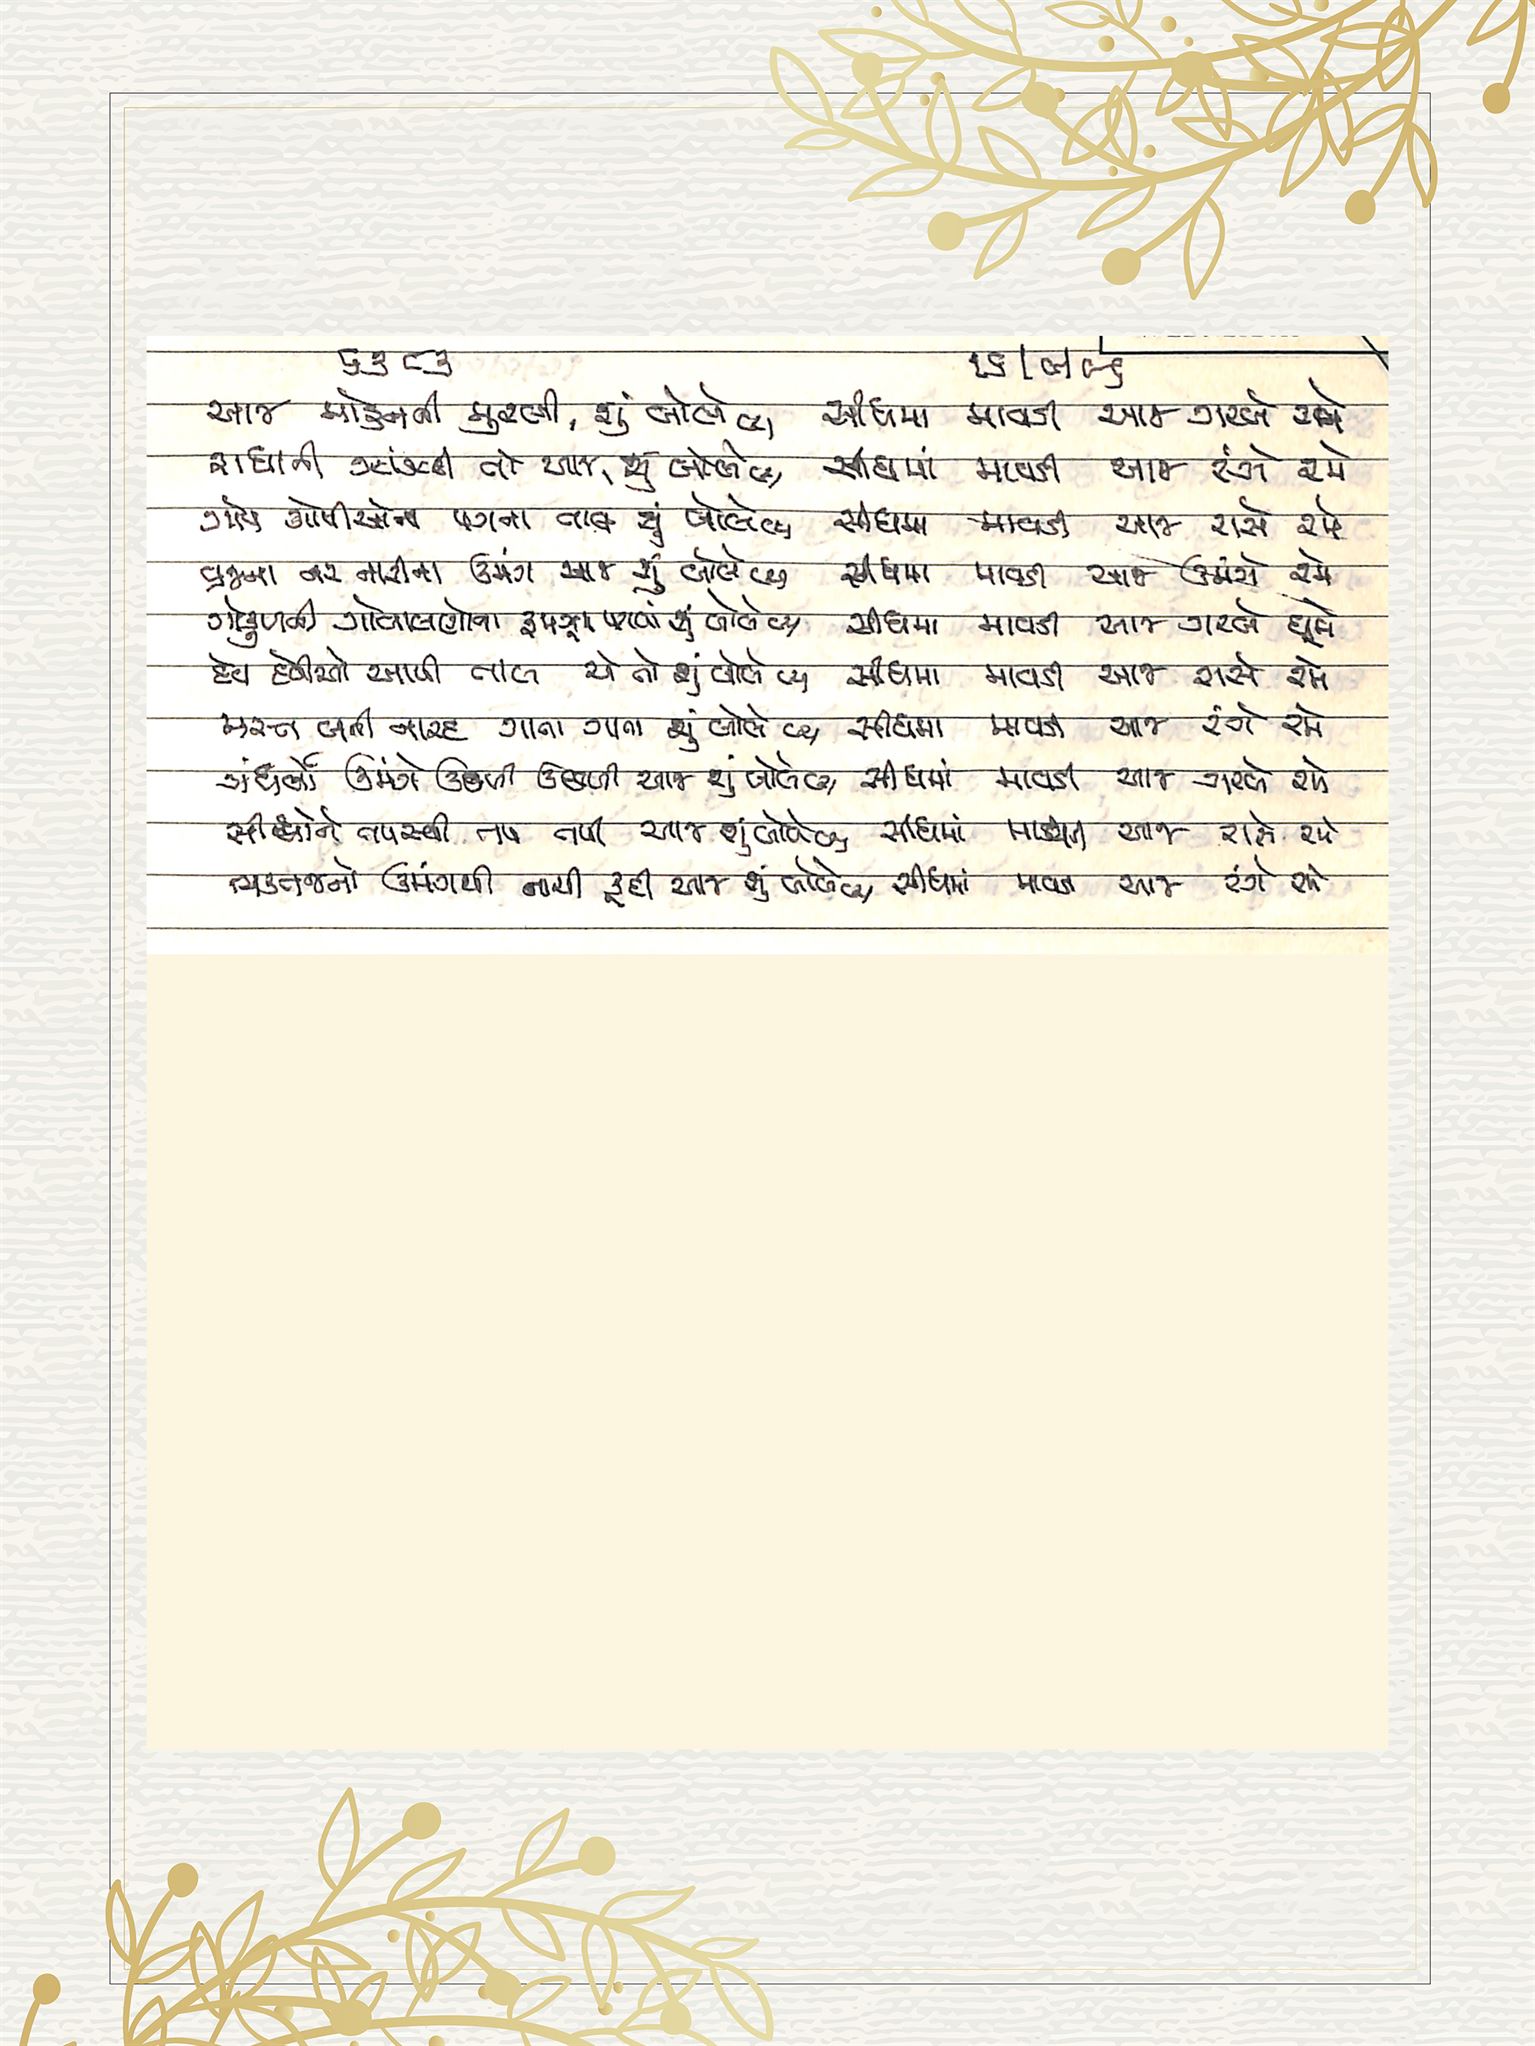 ૬૩૮૩ ૧૬/૭/૮૬
આજ મોહનની મુરલી, શું બોલે છે, સીધમા માવડી આજ ગરબે રમે
રાધાની ઝાંઝરી તો આજ, શું બોલે છે, સીધમાં માવડી આજ રંગે રમે
ગોપ ગોપીઓના પગના નાચ શું બોલે છે સીધમા માવડી આજ રાસે રમે
વ્રજના નર નારીના ઉમંગ આજ શું બોલે છે સીધમા માવડી આજ ઉમંગે રમે
ગોકુળની ગોવાલણોના શું બોલે છે સીધમા માવડી આજ ગરબે ઘૂમે
દેવ દેવીઓ આપી તાલ એ તો શું બોલે છે સીધમા માવડી આજ રાસે રમે
મસ્ત બની નારદ ગાતા ગાતા શું બોલે છે, સીધમા માવડી આજ રંગે રમે
ગંધર્વો ઉમંગે ઉછળી ઉછળી આજ શું બોલે છે, સીધમાં માવડી આજ ગરબે રમે
સીધ્ધોને તપસ્વી તપ તપી આજ શું બોલે છે સીધમાં માવડી આજ રાસે રમે
ભક્તજનો ઉમંગથી નાચી કૂદી આજ શું બોલે છે, સીધમાં માવડી આજ રંગે રમે